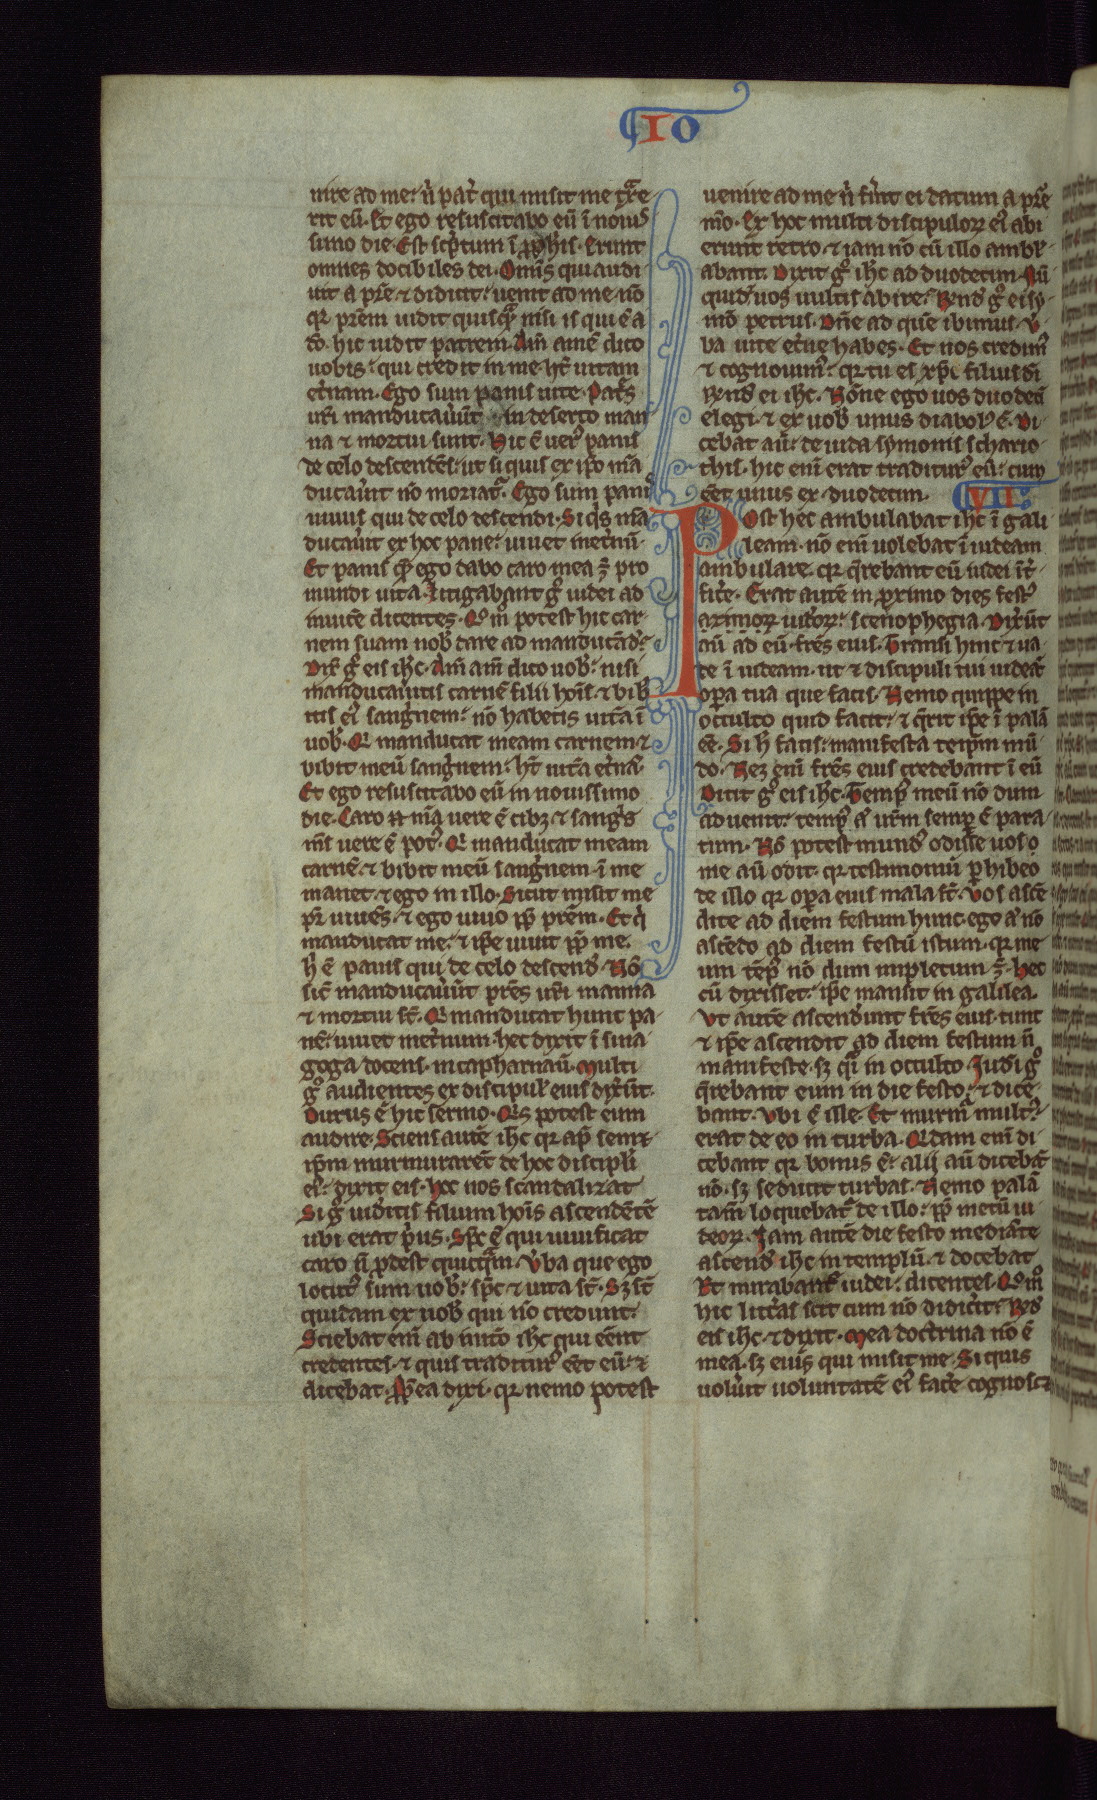 IO
nire ad me. n̄ pat̄ qui misit me tᵃxe
rit eū. Et ego resuscitabo eū ī nouis
simo die. Est sc̄ptum ī ꝓph̄is. Erunt
omnes docibiles dei. Omīs qui audi
uit a pr̄e ⁊ didicit. uenit ad me. nō
qr̄ pr̄em uidit quisqᵃ nisi is qui ē a
dō. hic uidit patrem. Am̄ amē dico
uobis. qui credit in me ht̄ uitam
et̄nam. Ego sum panis uite. Patr̄s
ur̄i manducauer̄t in deserto man
na ⁊ mortui sunt. Hic ē uerꝰ panis
de celo descendēs. ut si quis ex ip̄o mā
ducaūit nō moriatᷣ. Ego sum panis
uiuus qui de celo descendi. Si qⁱs mā
ducaūit ex hoc pane. uiuet inet̄nū.
Et panis qᵉ ego dabo caro mea ē pro
mundi uita. Litigabant gᵒ iudei ad
inuicē dicentes. Qᵒmᵒ potest hic car
nem suam nob̄ dare ad manducād̄.
Dix̄ gᵒ eis ih̄c. Am̄ am̄ dico uob̄. nisi
manducaūitis carnē filii hoīs ⁊ bib̄
itis eiꝰ sangⁱnem. nō habetis uitā ī
uob̄. Qⁱ manducat meam carnem ⁊
bibit meū sangⁱnem. ht̄ uitā et̄nā.
Et ego resuscitabo eū in nouissimo
die. Caro n̄ mᵃ uere ē cibꝫ ⁊ sangⁱs
mˢ uere ē potꝰ. Qⁱ manducat meam
carnē. ⁊ bibit meū sangⁱnem. ī me
manet. ⁊ ego in illo. Sicut misit me
pr̄ uiuēs. ⁊ ego uiuo ꝓp̄ pr̄em. Et qⁱ
manducat me. ⁊ ip̄e uiuit ꝓp̄ me.
h̄ ē panis qui de celo descend̄. Nō
sic̄ manducauer̄t pr̄es ur̄i manna
⁊ mortui st̄. Qⁱ manducat hunc pa
nē. uiuet inet̄num. hec dixit ī sina
goga docens. in capharnaū. Multi
gᵒ audientes ex discipul̄ eius dix̄t.
Durus ē hic sermo. Qⁱs potest eum
audire. Sciens autē ih̄c qr̄ apᵈ semet
ip̄m murmurarēt de hoc discipli
eiꝰ. dixit eis. hoc uos scandalizat
Si gᵒ uid̄itis filium hoīs ascendētē
ubi erat pⁱus. Sp̄c ē qui uiuificat
caro n̄ ꝓdest quicqᵃm. Ūba que ego
locutꝰ sum uob̄. sp̄c ⁊ uita st̄. Sꝫ st̄
quidam ex uob̄ qui nō credunt.
Sciebat enī ab initō ih̄c qui eēnt
credentes. ⁊ quis traditurꝰ eēt eū. ⁊
dicebat. Ꝓpᵉea dixi. qr̄ nemo potest
uenire ad me n̄ fūit ei datum a pr̄e
mᵒ. Ex hoc multi discipuloꝝ eiꝰ abi
erunt retro. ⁊ iam nō cū illo ambl̄
abant. Dixit gᵒ ih̄c ad duodecim. Nū
quid uos uultis abire. R̄nd̄ gᵒ ei sy
mō petrus. Dn̄e ad quē ibimus. Ū
ba uite et̄ne habes. Et nos credimꝰ
⁊ cognouimꝰ. qr̄ tu es xp̄c filius di
R̄nd̄ ei ih̄c. Nōne ego uos duodeci
elegi. ⁊ ex uob̄ unus diabolꝰ ē. Di
cebat aū. de iuda symonis schario
this. hic enī erat traditurꝰ eū. cum
eēt unus ex duodecim.
VII
Post hec ambulabat ih̄c ī gali
leam. nō enī uolebat ī iudeam
ambulare. qr̄ qᵉrebant eū iudei īt̄
fic̄e. Erat autē in ꝓximo dies festꝰ
azimoꝝ iudeoꝝ. scenophegia. Dix̄t
aū ad eū. fr̄es eius. Transi hinc ⁊ ua
de ī iudeam. ut ⁊ discipuli tui uideāt
opᵃ tua que facis. Nemo quippe in
occulto quid facit. ⁊ qᵉrit ip̄e ī palā
eē. Si h̄ facis. manifesta teip̄m mū
do. Neꝫ enī fr̄es eius credebant ī eū
Dicit gᵒ eis ih̄c. Tempꝰ meū nō dum
aduenit. tempꝰ aᵗ ur̄m sempᵉ ē para
tum. Nō potest mundꝰ odisse uos o
me aū odit. qr̄ testimoniū ꝑhibeo
de illo qr̄ opᵃ eius mala st̄. Vos ascē
dite ad diem festum hunc. ego aᵗ nō
ascēdo ad diem festū istum. qr̄ me
um tēpꝰ nō dum impletum ē. Hec
cū dixisset. ip̄e mansit in galilea.
Vt autē ascendᵉunt fr̄es eius. tunc
⁊ ip̄e ascendit ad diem festum n̄
manifeste. sꝫ qⁱ in occulto. Iudi gᵒ
qᵉrebant eum in die festo. ⁊ dice
bant. Vbi ē ille. Et murmᵃ multꝰ
erat de eo in turba. Qⁱdam enī di
cebant qr̄ bonus ē. alij aū dicebāt
nō. sꝫ seducit turbas. Nemo palā
tam̄ loquebatᷣ de illo. ꝓp̄ metū iu
deoꝝ. Iam autē die festo mediāte
ascend̄ ih̄c in templū. ⁊ docebat
Et mirabant iudei. dicentes. Qᵒmᵒ
hic litt̄as scit cum nō didic̄it. R̄d̄
eis ih̄c. ⁊ dixit. Mea doctrina nō ē
mea. sꝫ eius qui misit me. Si quis
uoluᵉit uoluntatē eiꝰ fac̄e cognoscᵗ